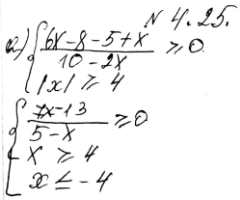 N 4.25.
a) { (6x-8-5+x)/(10-2x) ≥ 0
|x| ≥ 4
{ (7x-13)/(5-x) ≥ 0
x ≥ 4
x ≤ -4